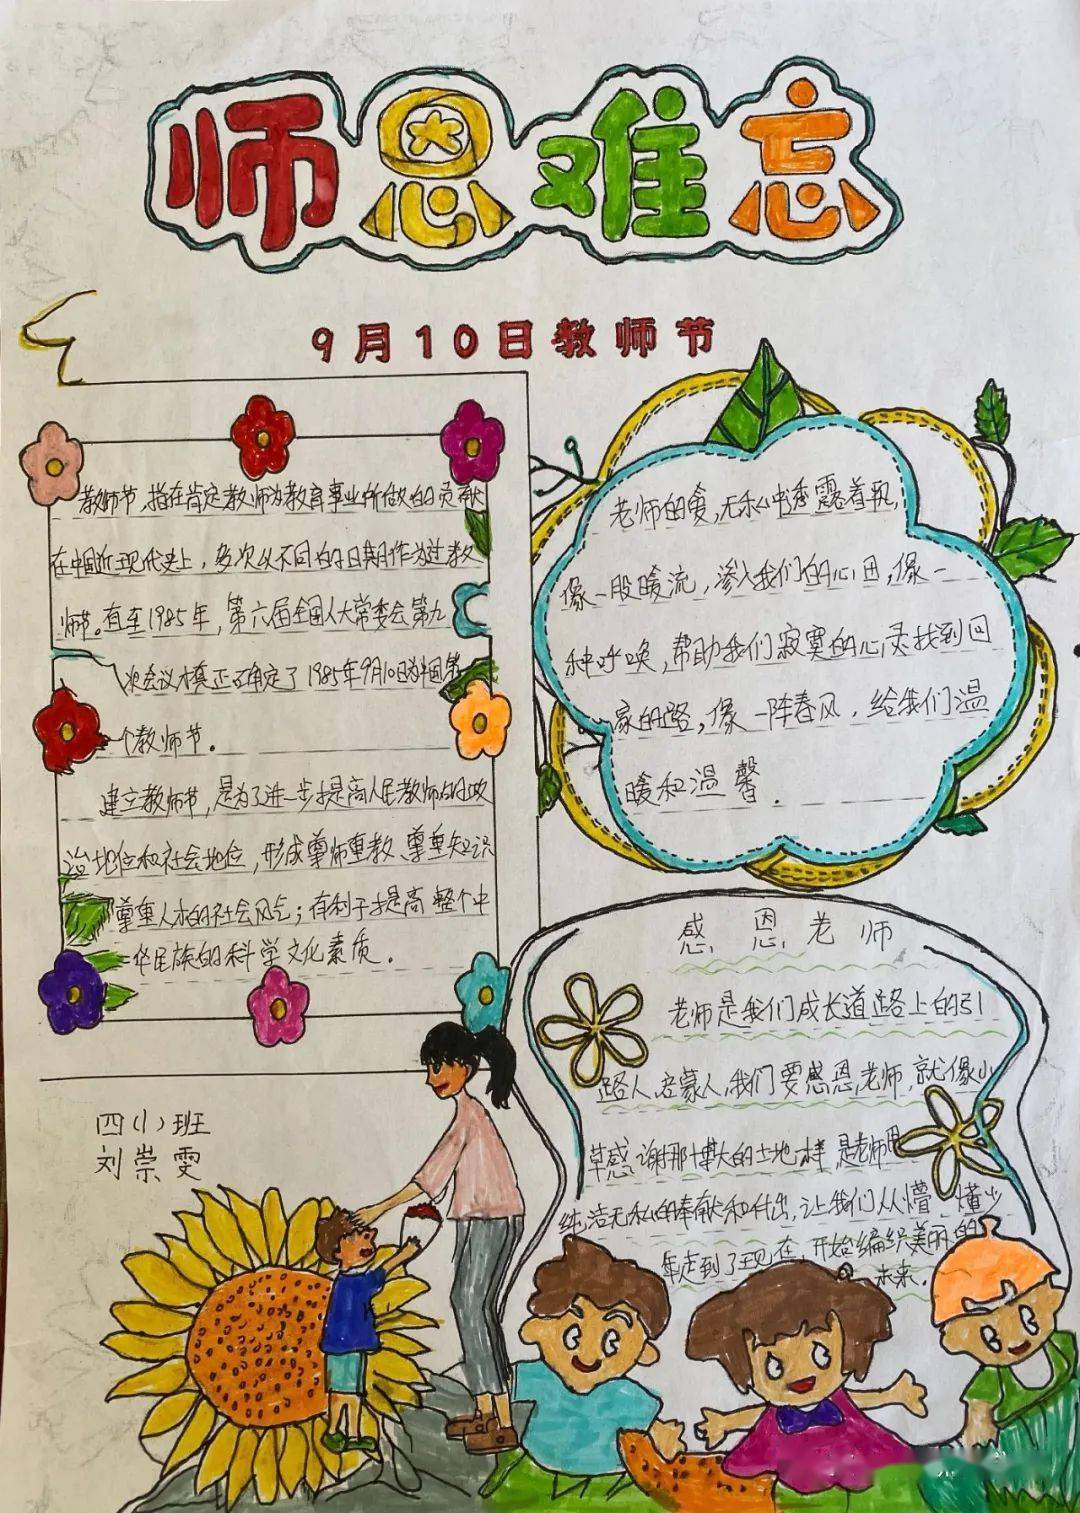 师恩难忘
9月10日教师节
教师节,指在肯定教师为教育事业所做的贡献
在中国近现代史上,多次以不同的日期作为过教
师节。直至1985年,第六届全国人大常委会第九
次会议才真正确定了1985年9月10日为中国第
一个教师节.
建立教师节,是为了进一步提高人民教师的政
治地位和社会地位,形成尊师重教、尊重知识
尊重人才的社会风气;有利于提高整个中
华民族的科学文化素质.
老师的爱,无私中透露着亲,
像一股暖流,渗入我们的心田,像一
种呼唤,帮助我们寂寞的心灵找到回
家的路,像一阵春风,给我们温
暖和温馨.
感恩老师
老师是我们成长道路上的引
路人,启蒙人,我们要感恩老师,就像小
草感谢那博大的土地样 是老师用
纯洁无私的奉献和付出,让我们从懵懂少
年走到了现在,开始编织美丽的
未来.
四(1)班
刘崇雯